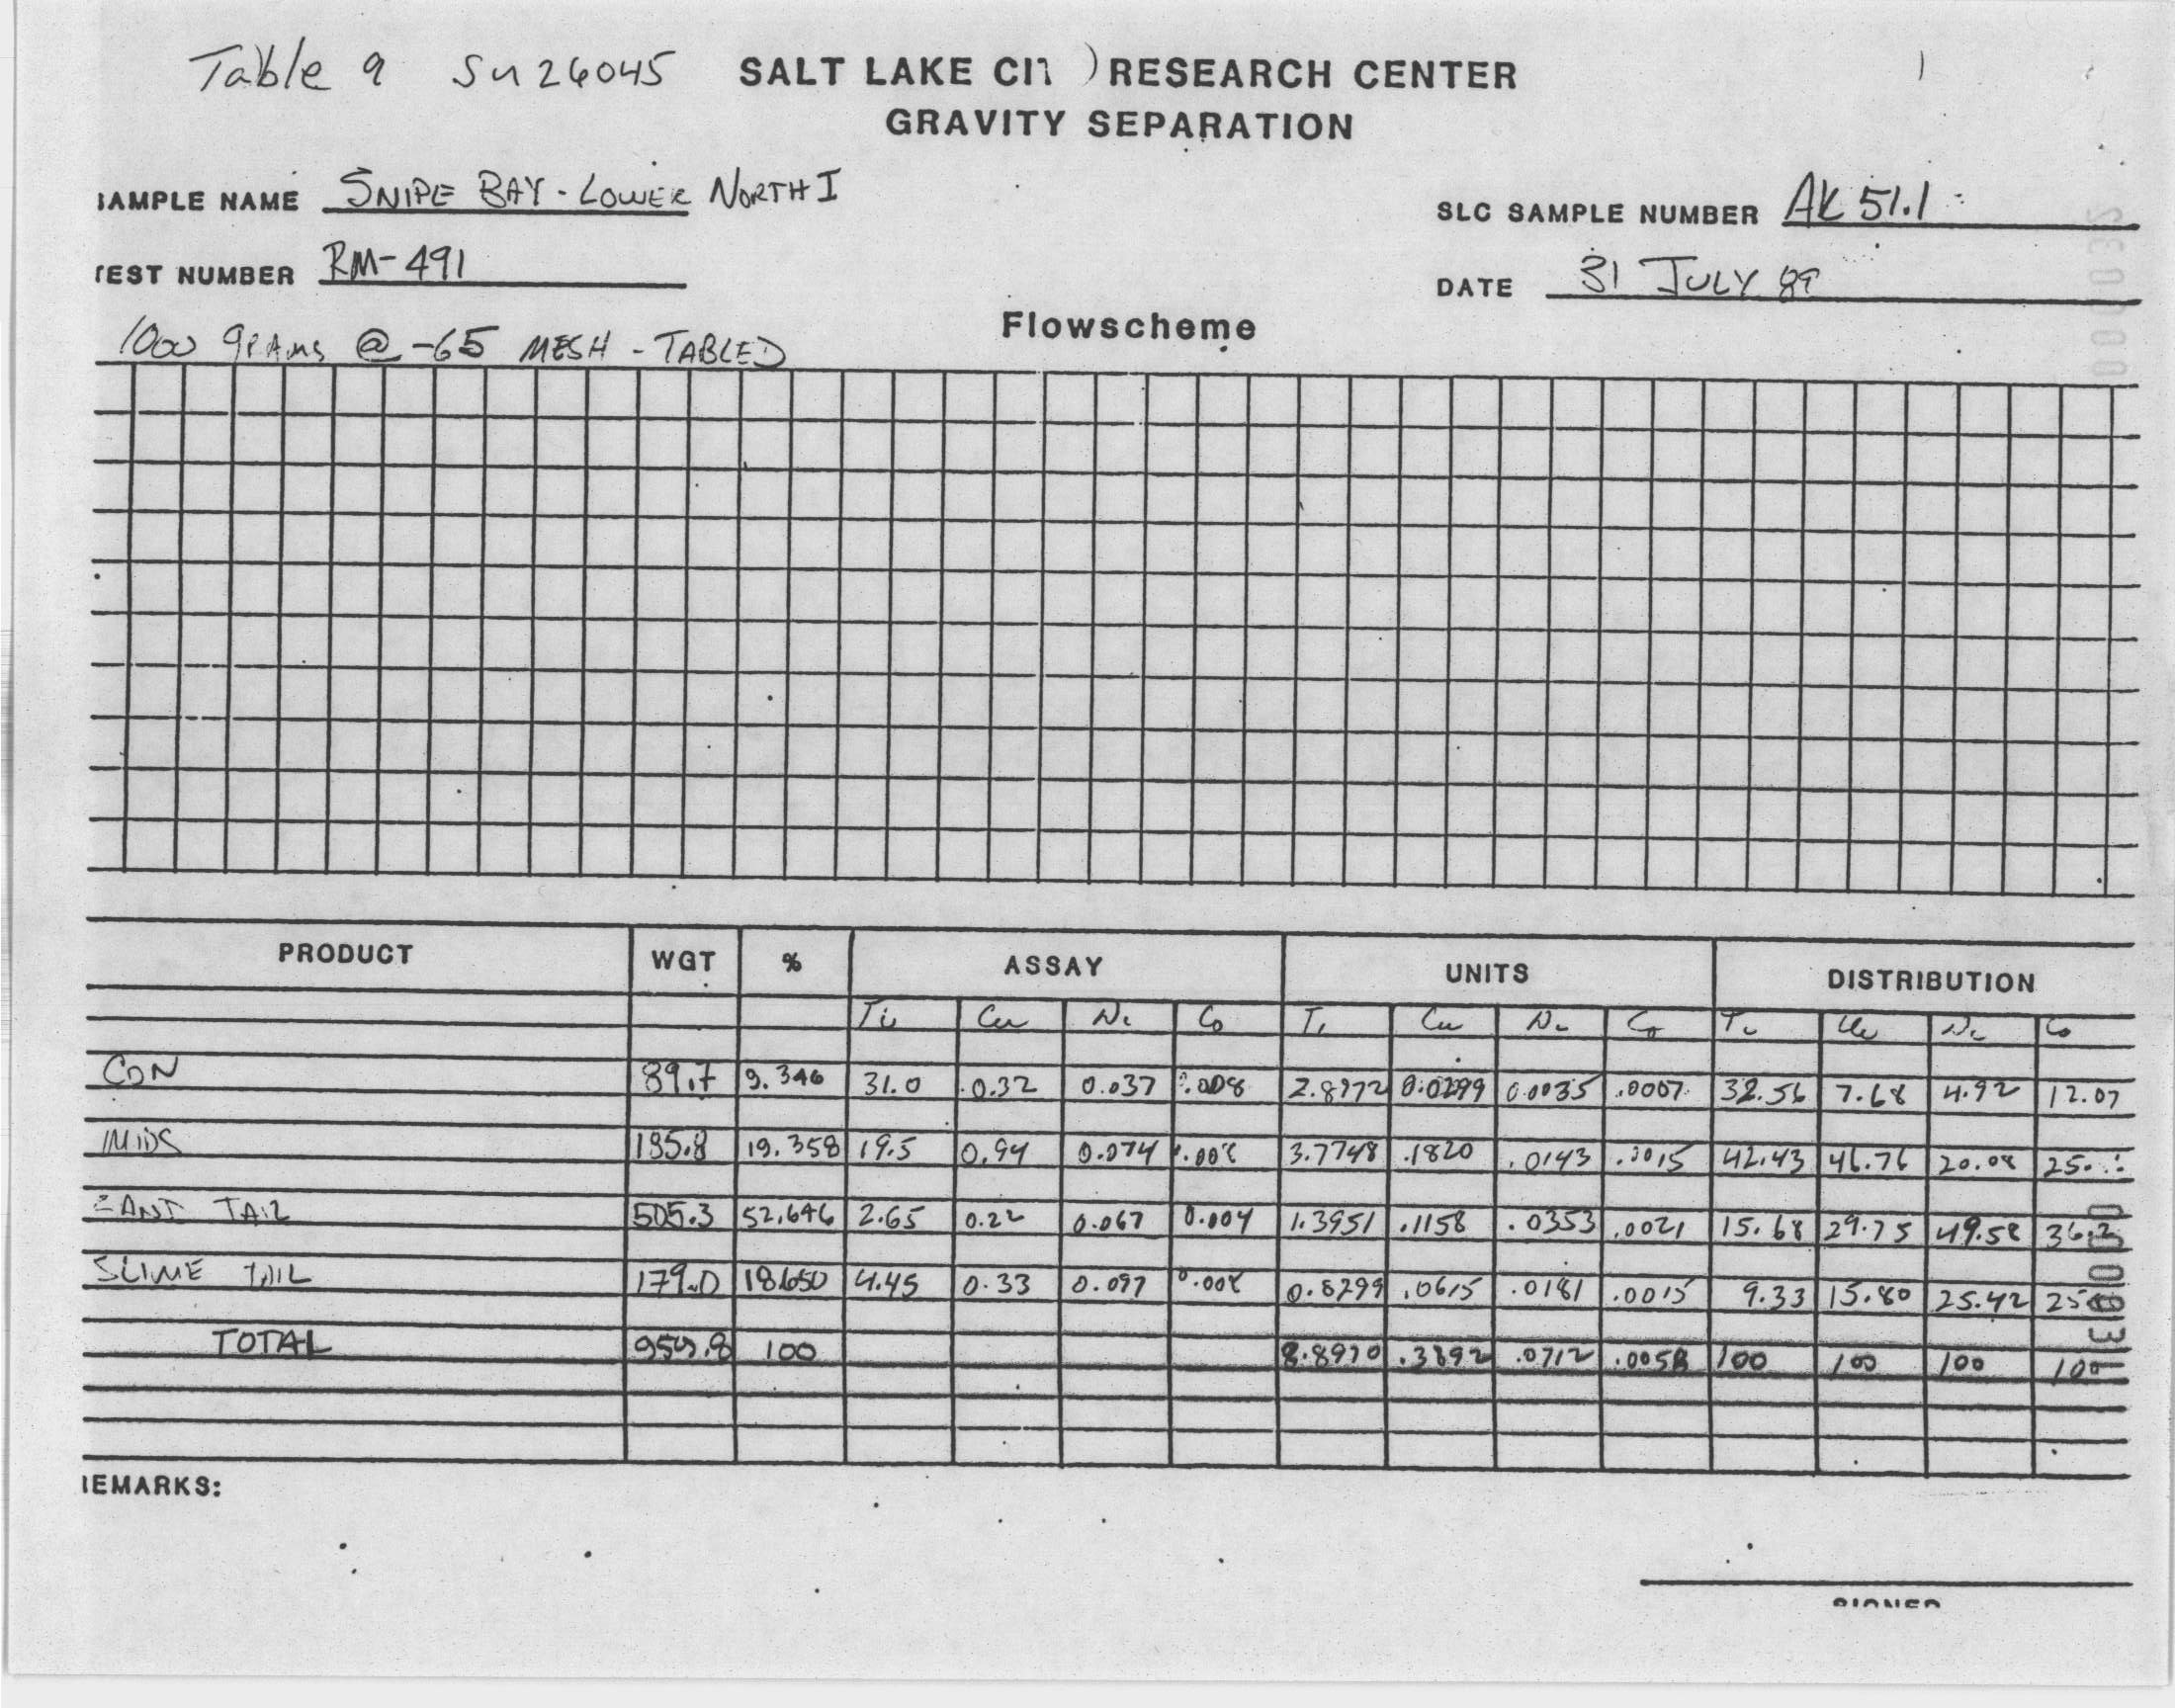 Table 9 SN26045 SALT LAKE CI ) RESEARCH CENTER
GRAVITY SEPARATION
SAMPLE NAME SNIPE BAY - LOWER NORTH I
SLC SAMPLE NUMBER AK 51.1
TEST NUMBER RM-491
DATE 31 JULY 89
Flowscheme
1000 grams @ -65 MESH - TABLED
PRODUCT WGT % ASSAY UNITS DISTRIBUTION
Ti Cu Ni Co Ti Cu Ni Co Ti Cu Ni Co
CON 89.7 9.346 31.0 0.32 0.037 0.008 2.8972 0.0299 0.0035 .0007 32.56 7.68 4.92 12.07
MIDS 185.8 19.358 19.5 0.94 0.074 0.008 3.7748 .1820 .0143 .0015 42.43 46.76 20.08 25.
SAND TAIL 505.3 52.646 2.65 0.22 0.067 0.004 1.3951 .1158 .0353 .0021 15.68 29.75 49.58 36.2
SLIME TAIL 179.0 18.650 4.45 0.33 0.097 0.008 0.8299 .0615 .0181 .0015 9.33 15.80 25.42 25
TOTAL 959.8 100 8.8970 .3892 .0712 .0058 100 100 100 100
REMARKS:
SIGNED